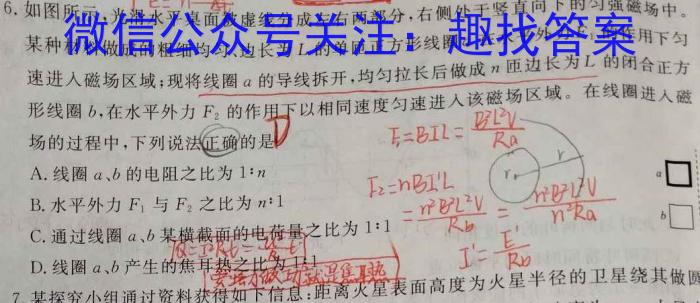 6.如图所示,光滑水平桌面被虚线分成左右两部分,右侧处于竖直向下的匀强磁场中。
某种材料做成的粗细均匀、边长为L的单匝正方形线圈 的作用下匀
微信公众号关注:趣找答案
速进入磁场区域;现将线圈a的导线拆开,均匀拉长后做成n匝边长为L的闭合正方
形线圈b,在水平外力F₂的作用下以相同速度匀速进入该磁场区域。在线圈进入磁
场的过程中,下列说法正确的是 D
F₁=BIL=B²L²V/Ra
A.线圈a、b的电阻之比为1:n
r
a
F₂=nBI'L
B.水平外力F₁与F₂之比为n:1
=n²B²L²V/Rb=n²B²L²V/n²Ra
b
C.通过线圈a、b某横截面的电荷量之比为1:1
I'=E/Rb
D.线圈a、b产生的焦耳热之比为1:1
7.某探究小组通过资料获得如下信息:距离火星表面高度为火星半径的卫星绕其做圆